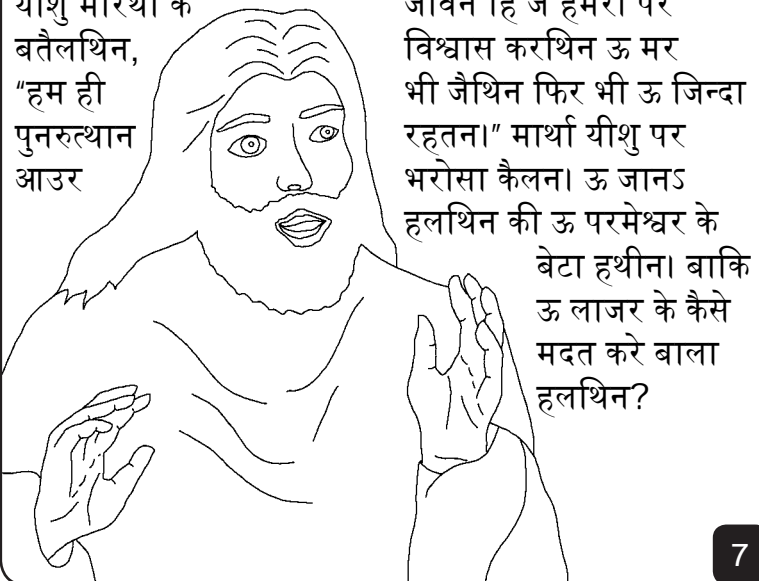 यीशु मारथा के
बतैलथिन,
“हम ही
पुनरुत्थान
आउर
जीवन हि जे हमरा पर
विश्वास करथिन ऊ मर
भी जैथिन फिर भी ऊ जिन्दा
रहतन।” मार्था यीशु पर
भरोसा कैलन। ऊ जानऽ
हलथिन की ऊ परमेश्वर के
बेटा हथीन। बाकि
ऊ लाजर के कैसे
मदत करे बाला
हलथिन?
7